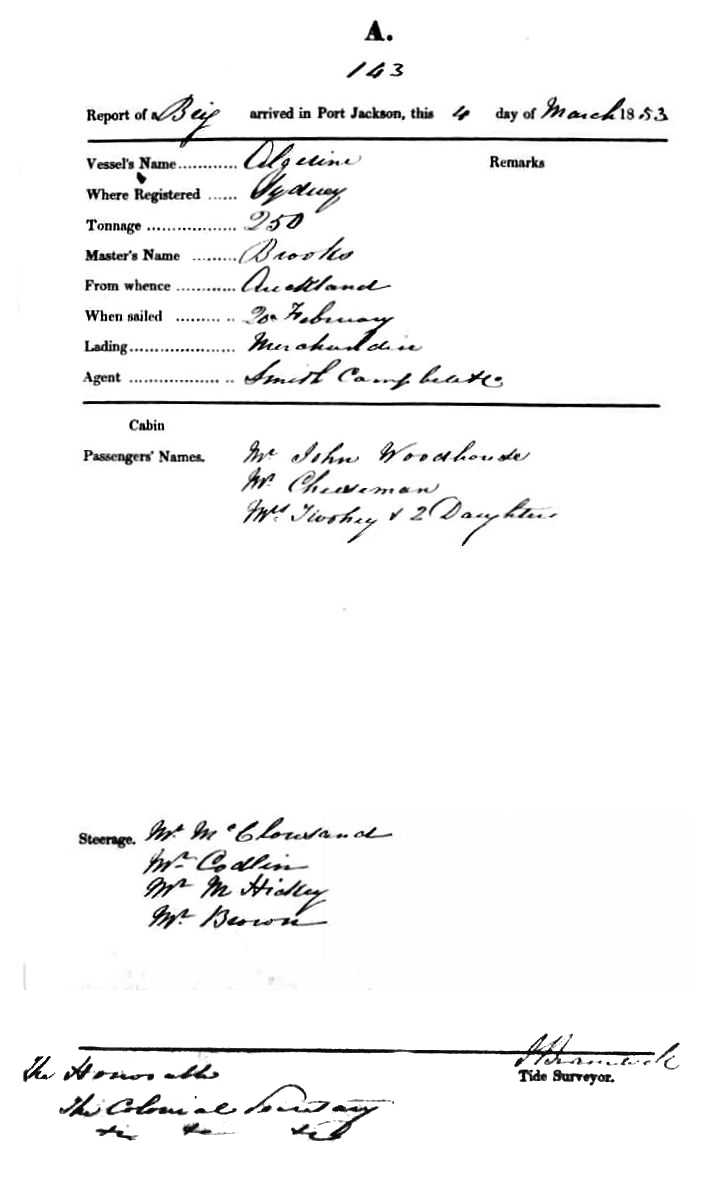 A.
143
Report of a Brig arrived in Port Jackson, this 4 day of March 1853
Vessel's Name ............ Algerine Remarks
Where Registered ...... Sydney
Tonnage .................. 250
Master's Name ......... Brooks
From whence ............ Auckland
When sailed ......... .. 20 February
Lading ..................... Merchandise
Agent .................. .. Smith Campbell & Co
Cabin
Passengers' Names. Mr John Woodhouse
Mr Cheeseman
Mrs Twohey & 2 Daughters
Steerage. Mr
Mr Codlin
Mr M Hickey
Mr Brown
Tide Surveyor.
The Honorable
The Colonial Secretary